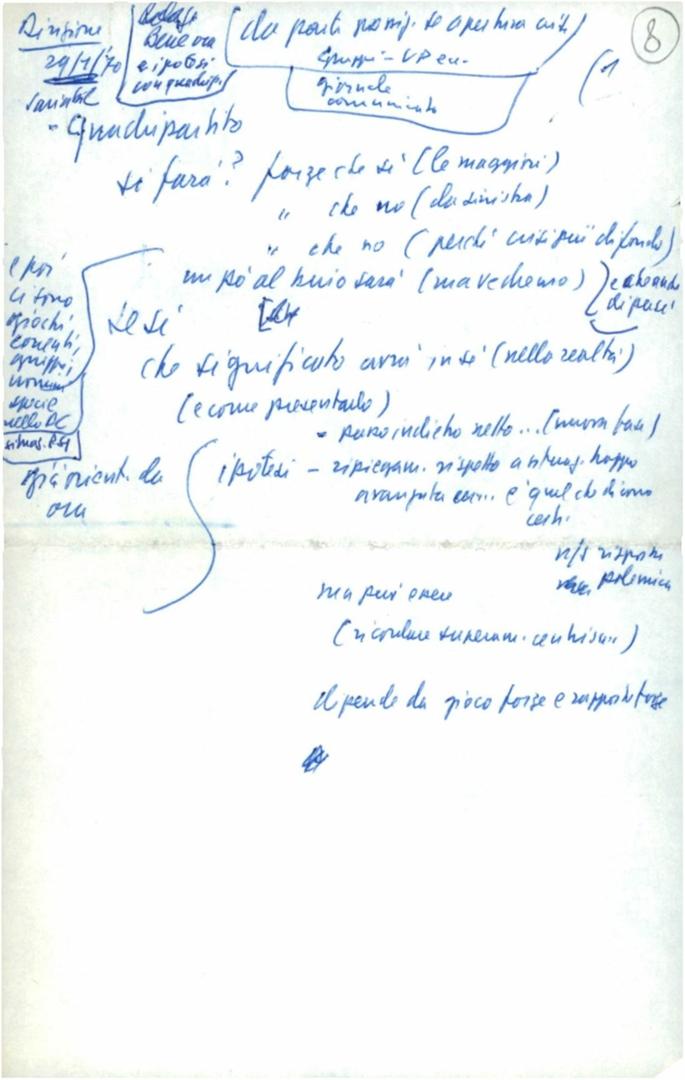 Direzione
29/1/70
Bene ora
e ipotesi
con quadrip.
(da parte
se apertura crisi)
Gruppi - UP ecc.
giornale
comunicato
8
(1
- Quadripartito
si farà? forze che sì (le maggiori)
" che no (da sinistra)
" che no (perché crisi più di fondo)
un po' al buio sarà (ma vedremo)
e poi
ci sono
giochi,
correnti,
gruppi,
uomini
specie
nella DC
se sì
che significato avrà in sé (nella realtà)
(e come presentarlo)
- passo indietro netto... (nuova fase)
già orient. da
ora
ipotesi - ripiegam. rispetto a troppo
avanzata ecc... è quel che dicono
certi.
n/s risposta
polemica
ma può essere
(ricordare superam. centrismo)
dipende da gioco forze e rapporto forze